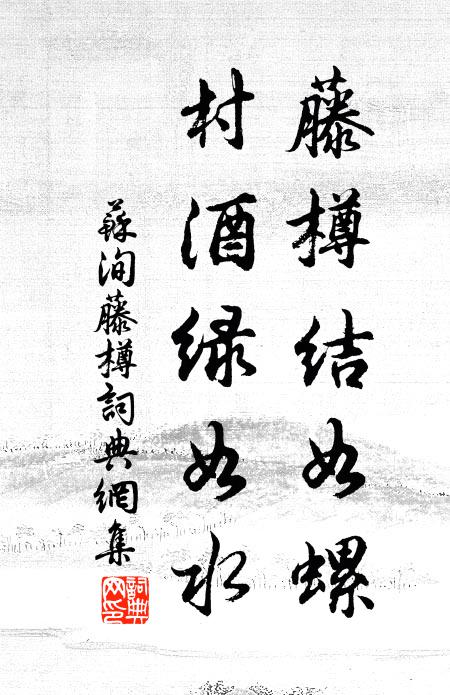 藤樽結如螺
村酒綠如水
蘇洵藤樽詞典網集
詞典
网